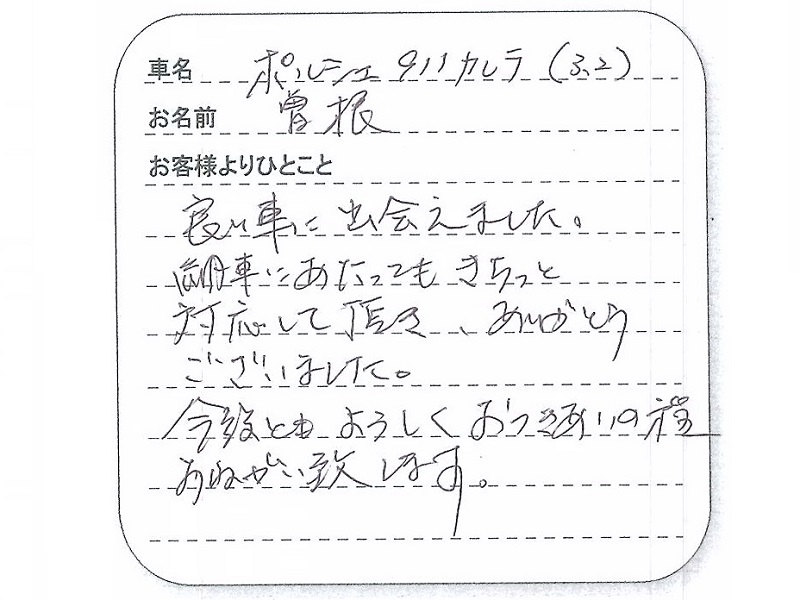 車名 ポルシェ 911 カレラ (3.2)
お名前 曽根
お客様よりひとこと
良い車に出会えました。
納車にあたってもきちっと
対応して頂き、ありがとう
ございました。
今後ともよろしくおつきあいの程
おねがい致します。